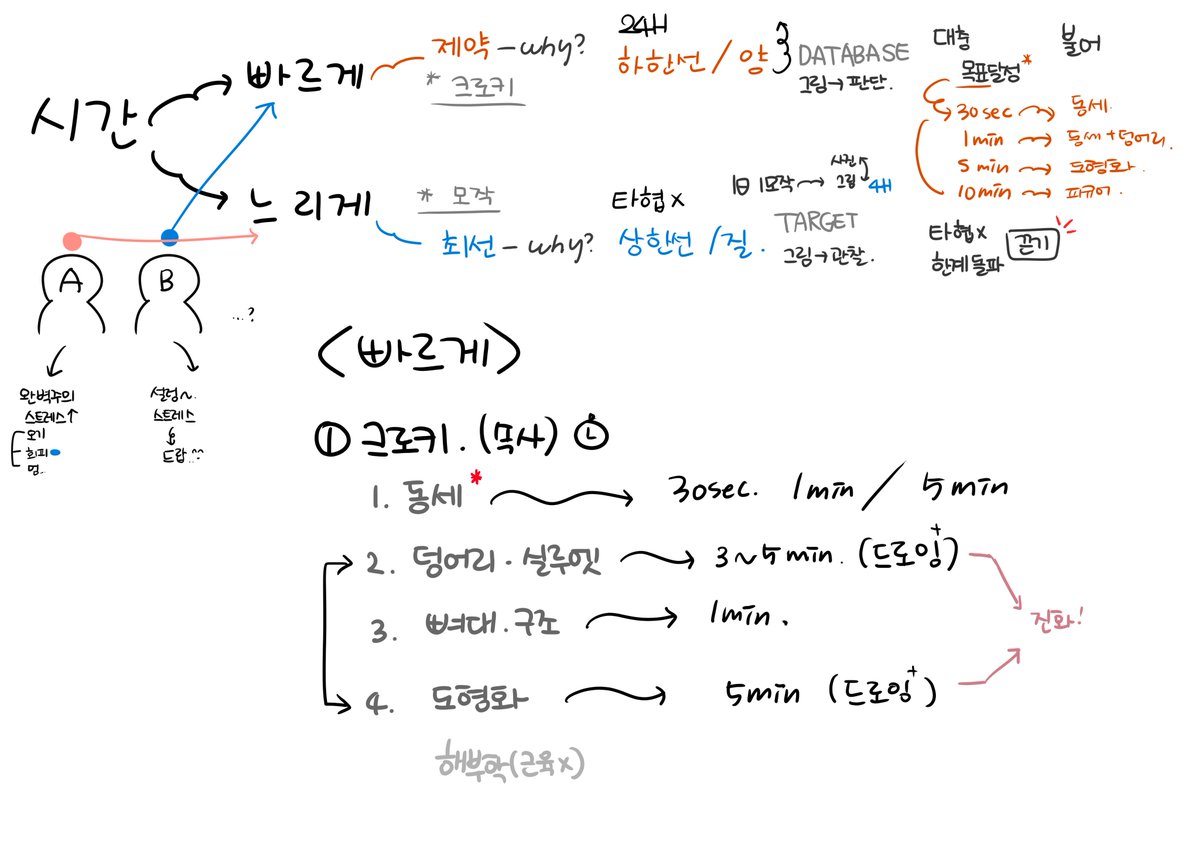 시간
빠르게
제약 - why?
* 크로키
24H
하한선 / 양
DATABASE
그림→판단.
대충
목표달성*
불어
30sec → 동세.
1min → 동세+덩어리.
5min → 도형화.
10min → 피규어.
느리게
* 모작
최선 - why?
타협 x
상한선 / 질.
1日 1모작 → 사진 그림 4H
TARGET
그림→관찰.
타협 x
한계돌파
끈기
A
B
...?
완벽주의
스트레스↑
오기
회피
멈..
설렁~.
스트레스
드랍..^^
<빠르게>
① 크로키. (묘사)
1. 동세* → 30sec. 1min / 5min
2. 덩어리·실루엣 → 3~5min. (드로잉+)
3. 뼈대·구조 → 1min.
진화!
4. 도형화 → 5min (드로잉+)
해부학(근육x)